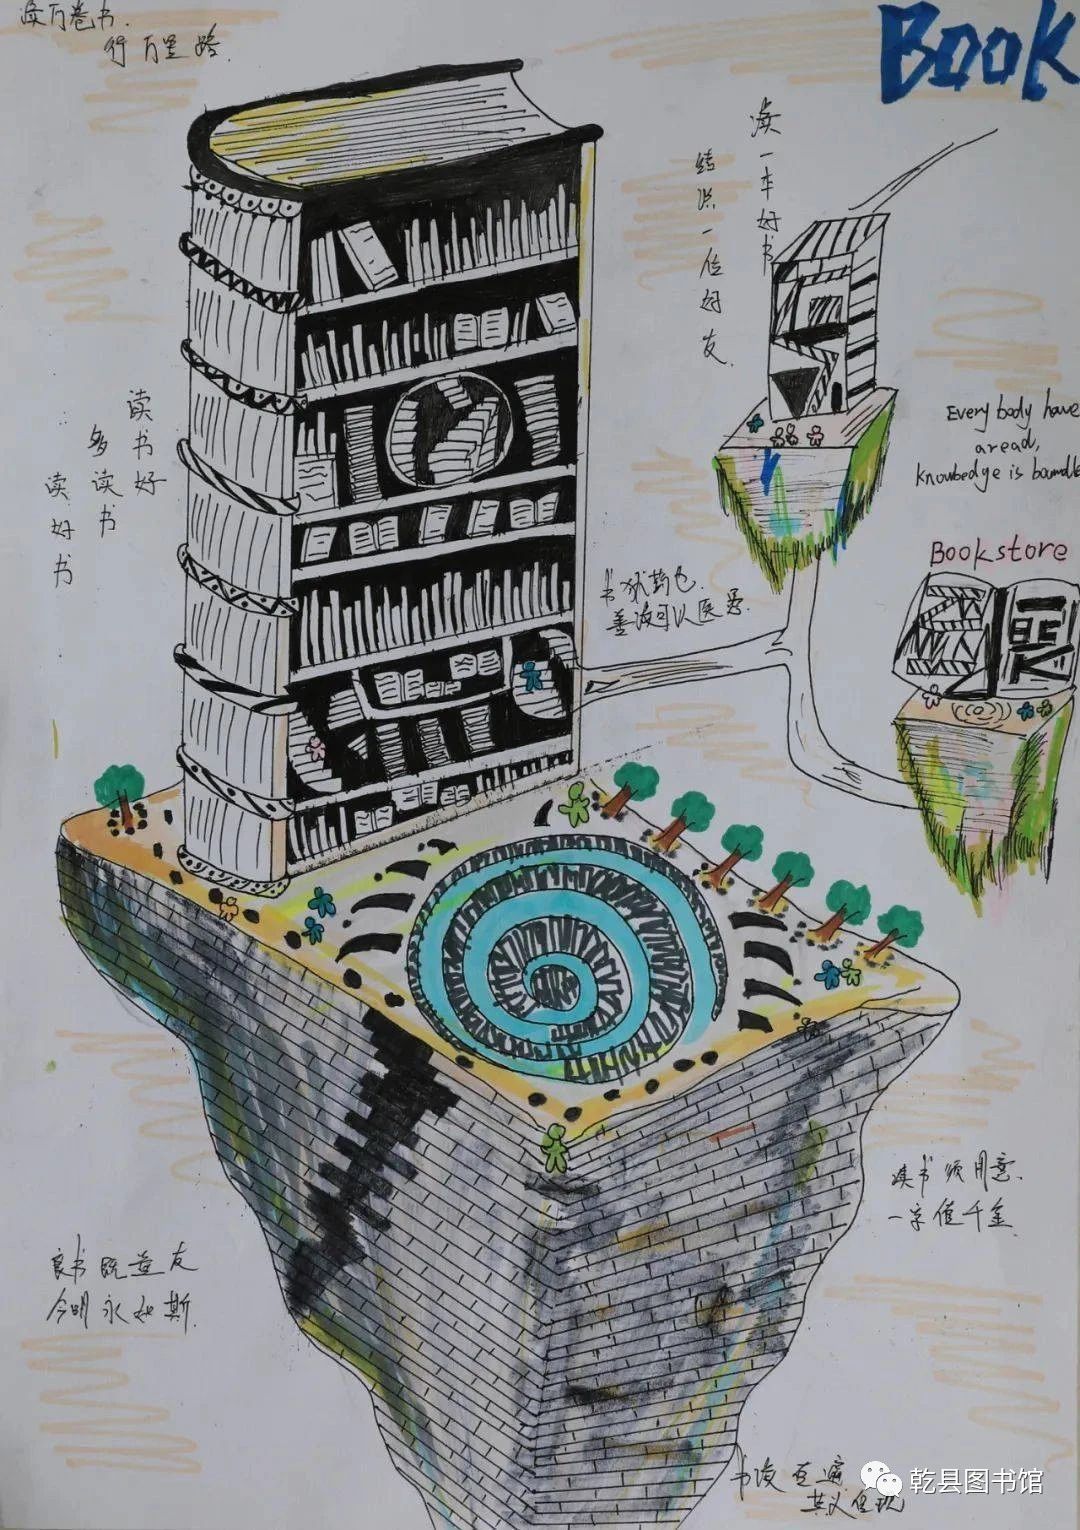 读万卷书.
行万里路.
Book
读一本好书
结识一位好友.
读书好
多读书
读好书
Every body have
aread,
knowbedge is
Bookstore
书犹药也.
善读可以医愚.
读书须用意.
一字值千金
良书既益友
今明永如斯.
书读百遍
其义自现
乾县图书馆